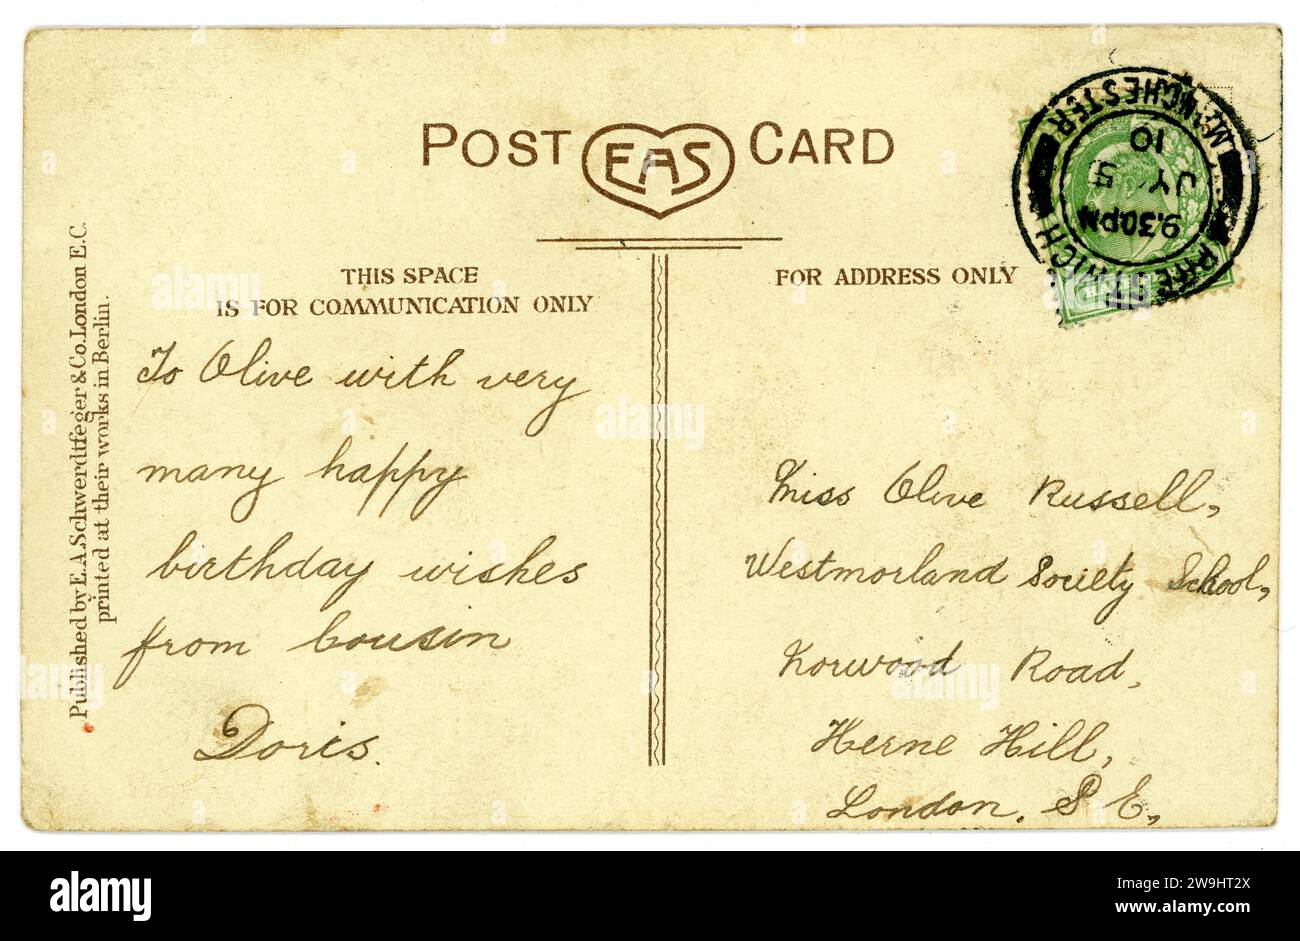 POST EAS CARD
THIS SPACE
IS FOR COMMUNICATION ONLY
To Olive with very
many happy
birthday wishes
from Cousin
Doris.
FOR ADDRESS ONLY
Miss Olive Russell,
Westmorland Society School,
Norwood Road,
Herne Hill,
London. S E,
PRESTWICH
MANCHESTER
9.30PM
JY 5
10
Published by E.A.Schwerdtfeger & Co. London E.C.
printed at their works in Berlin.
alamy
Image ID: 2W9HT2X
www.alamy.com